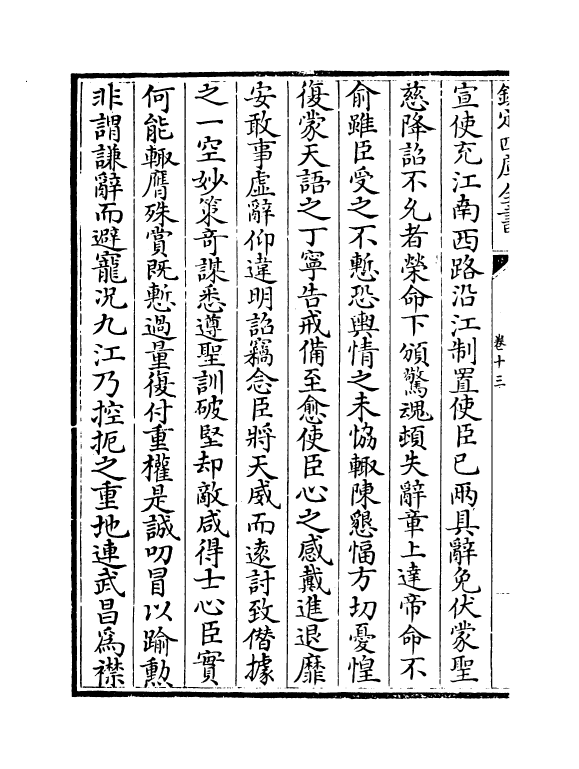 欽定四庫全書
卷十三
宣使充江南西路沿江制置使臣已兩具辭免伏蒙聖
慈降詔不允者榮命下頒驚魂頓失辭章上達帝命不
俞雖臣受之不慙恐輿情之未恊輙陳懇愊方切憂惶
復蒙天語之丁寧告戒備至愈使臣心之感戴進退靡
安敢事虛辭仰違明詔竊念臣將天威而逺討致僭據
之一空妙策奇謀悉遵聖訓破堅却敵咸得士心臣實
何能輙膺殊賞既慙過量復付重權是誠叨冒以踰勲
非謂謙辭而避寵况九江乃控扼之重地連武昌爲襟